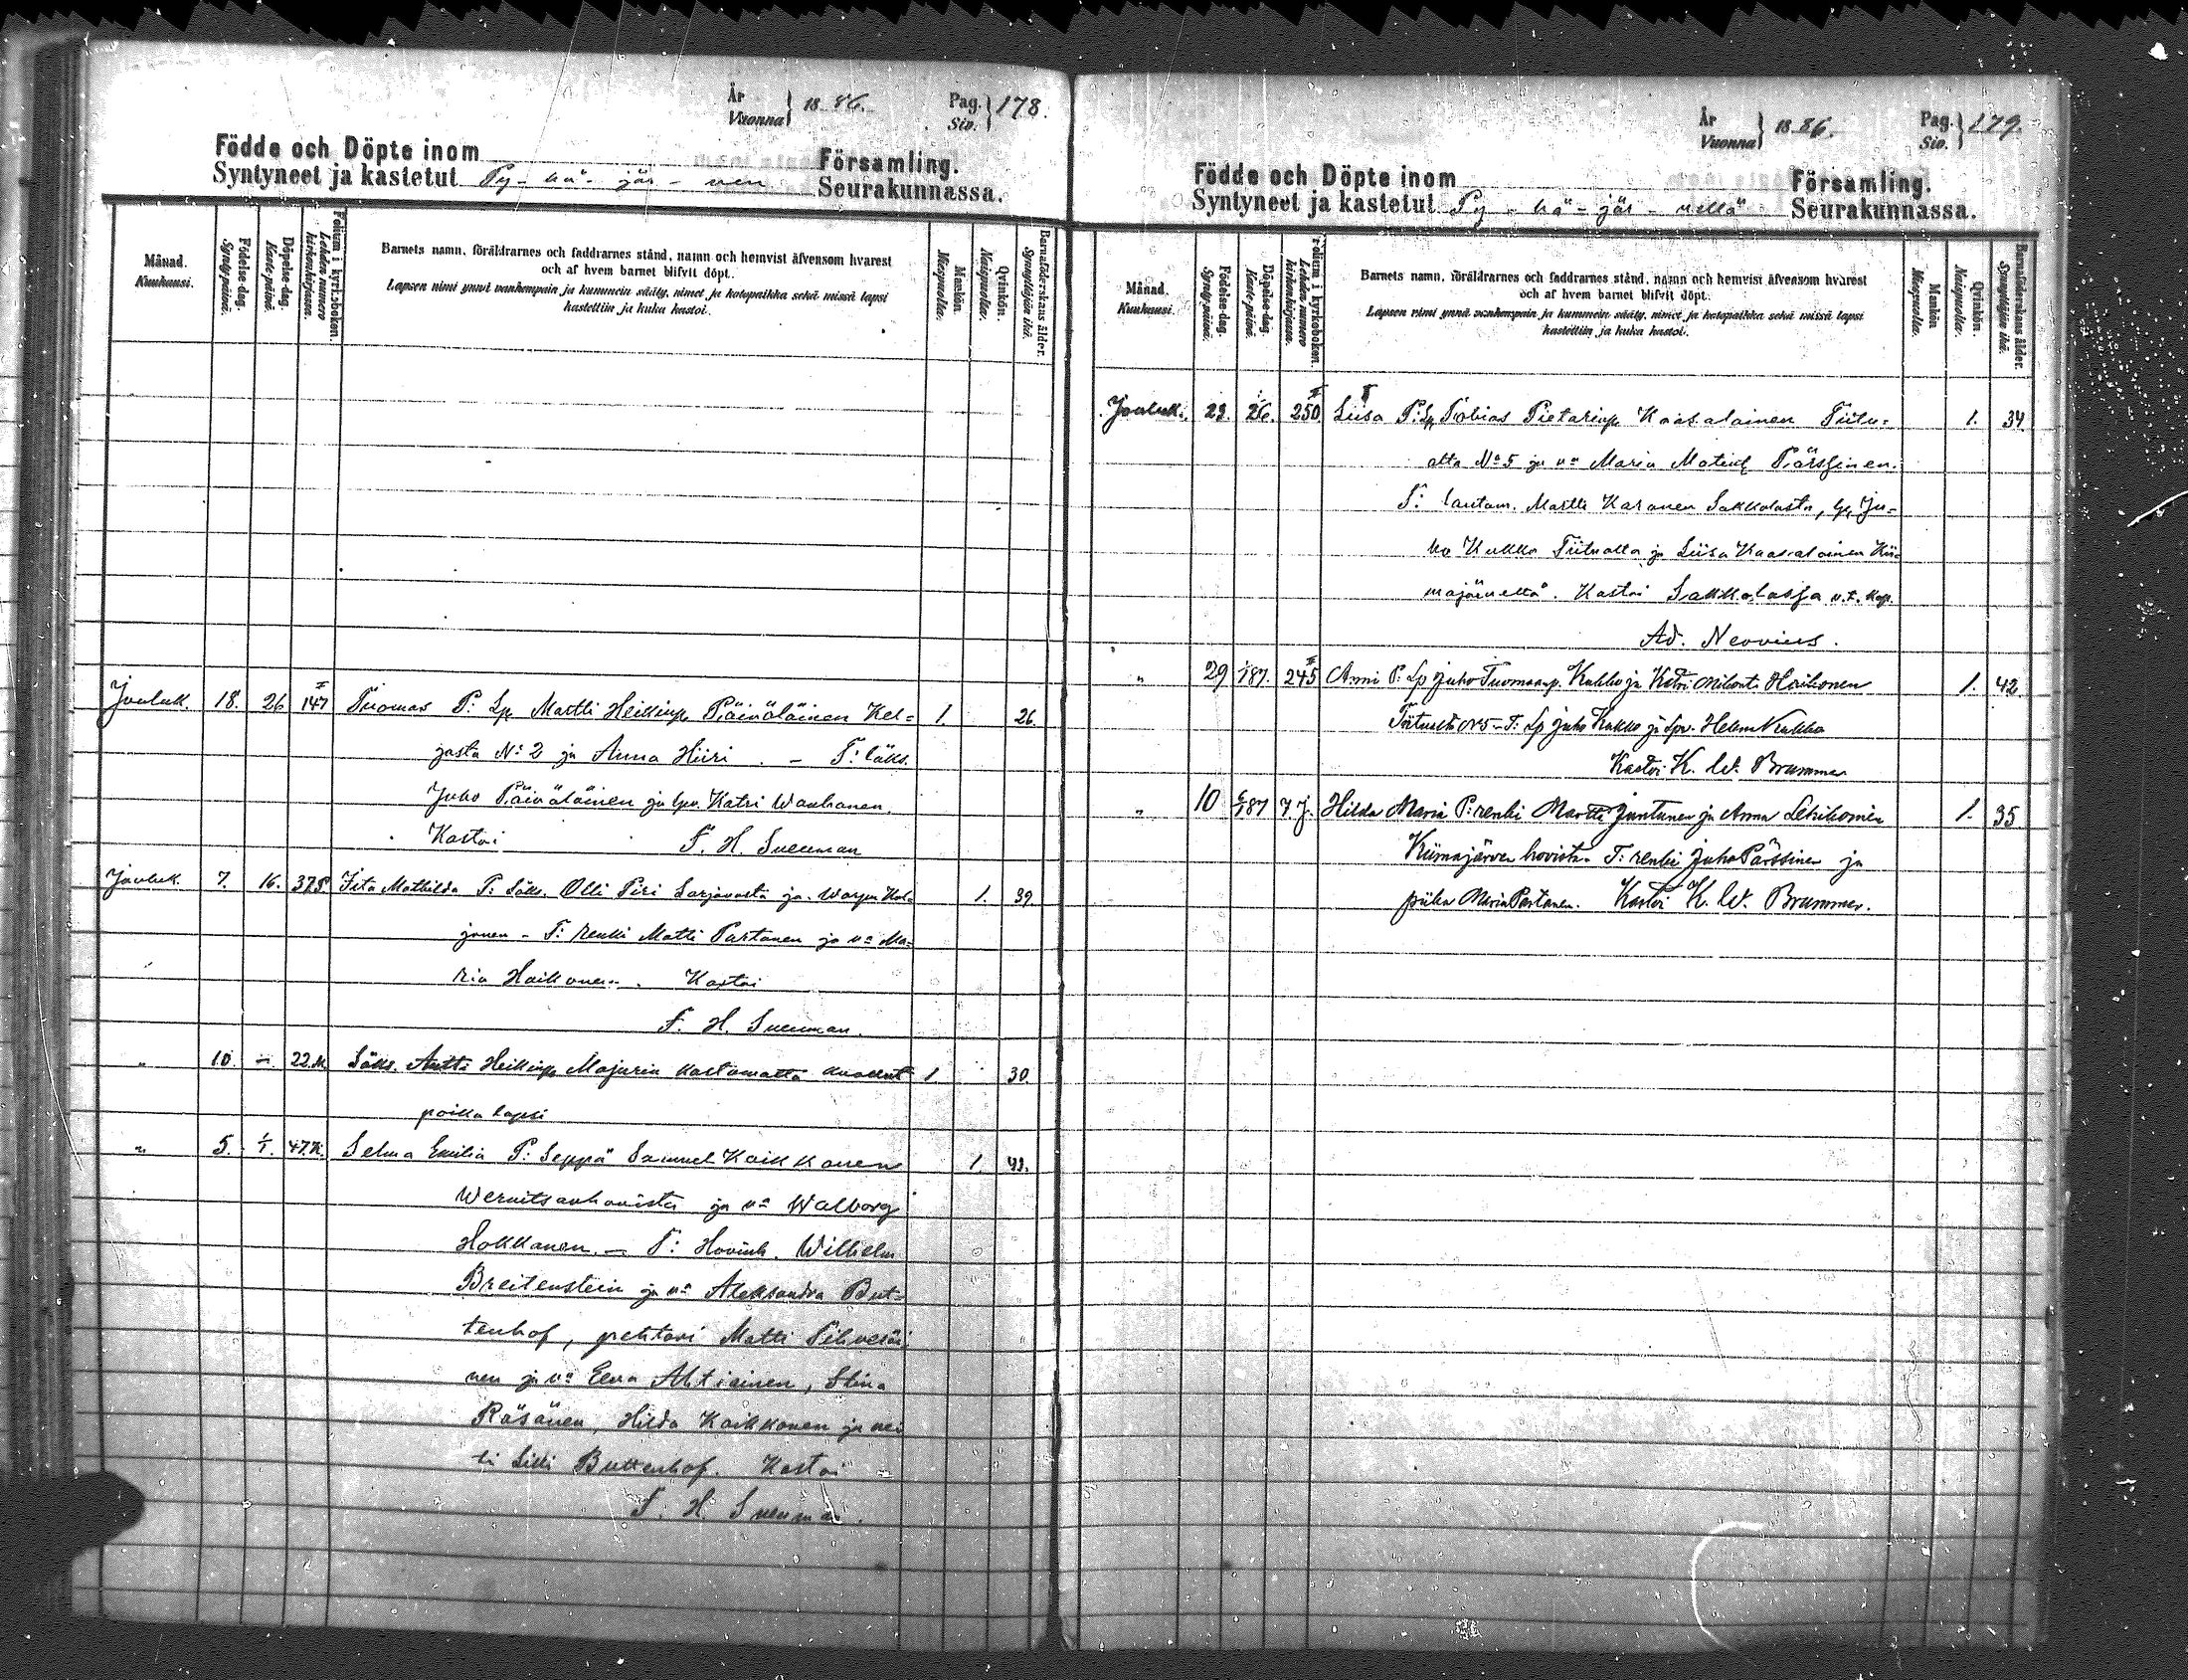 År
Vuonna } 1886. Pag.
Siv. } 178.
Födde och Döpte inom Församling.
Syntyneet ja kastetut Py-hä-jär-ven Seurakunnassa.
Månad.
Kuukausi.
Födelse-dag.
Syntypäivä.
Döpelse-dag.
Kaste-päivä.
Folium i kyrkoboken.
Lehden numero kirkonkirjassa.
Barnets namn, föräldrarnes och faddrarnes stånd, namn och hemvist äfvensom hvarest
och af hvem barnet blifvit döpt.
Lapsen nimi ynnä vanhempain ja kummein sääty, nimet ja kotopaikka sekä missä lapsi
kastettiin ja kuka kastoi.
Mankön.
Miespuolta.
Qvinkön.
Naispuolta.
Barnaföderskans ålder.
Synnyttäjän ikä.
Jouluk. 18. 26 147 Tuomas T: Lp. Martti Heikinp. Päiväläinen Kel= 1. 26.
jasta No 2 ja Anna Hiiri. – T: läks.
Juho Päiväläinen ja lpv. Katri Wauhanen.
Kastoi F. H. Suenman
Jouluk. 7. 16. 378 Ida Mathilda T: Läks. Olli Piri Larjavasta ja 1. 39.
janen – T: renki Matti Partanen ja va Ma=
ria Haikonen. Kastoi
F. H. Suenman.
" 10. – 22. Läks. Antti Heikinp. Majurin kastamatta kuollut 1 30.
poika lapsi
" 5. 1/1. 47. Selma Emilia T: Seppä Samuel Kaikkonen 1.
Wernitsanhovista ja va Walborg
Hokkanen. – T: Hovinh. Wilhelm
Breitenstein ja va Aleksandra But=
tenhof, pehtori Matti
nen ja va Eeva Ahtiainen, Stina
Räsänen, Hilda Kaikkonen ja nei
ti Lilli Buttenhof. Kastoi
F. H. Suenman.
År
Vuonna } 1886. Pag.
Siv. } 179.
Födde och Döpte inom Församling.
Syntyneet ja kastetut Py-hä-jär-vellä Seurakunnassa.
Månad.
Kuukausi.
Födelse-dag.
Syntypäivä.
Döpelse-dag.
Kaste-päivä.
Folium i kyrkoboken.
Lehden numero kirkonkirjassa.
Barnets namn, föräldrarnes och faddrarnes stånd, namn och hemvist äfvensom hvarest
och af hvem barnet blifvit döpt.
Lapsen nimi ynnä vanhempain ja kummein sääty, nimet ja kotopaikka sekä missä lapsi
kastettiin ja kuka kastoi.
Mankön
Miespuolta.
Qvinkön.
Naispuolta.
Barnaföderskans ålder.
Synnyttäjän ikä.
Jouluk. 23. 26. 250 Liisa T: Lp Tobias Pietarinp. Kaasalainen Tiitu= 1. 34
alta No 5 ja va Maria Matint. Pärssinen.
T: lautam. Martti Karonen Sakkolasta, lp. Ju=
ho Kukko Tiitualta ja Liisa Kaasalainen Kii=
majärveltä. Kastoi Sakkolassa v.t. kap.
Ad. Neovius.
" 29 1/187. 245 Anni T: Lp Juho Tuomaanp. Kukko ja Katri Mikont. Haikonen 1. 42.
Tiitualta N5 – T: Lp Juho Kukko ja Lpv. Helena Kukko
Kastoi K. W. Brummer
" 10 6/187 7. J. Hilda Maria T: renki Martti Juntunen ja Anna 1. 35
Kiimajärven hovista. T: renki Juho Pärssinen ja
piika Maria Partanen. Kastoi K. W. Brummer.